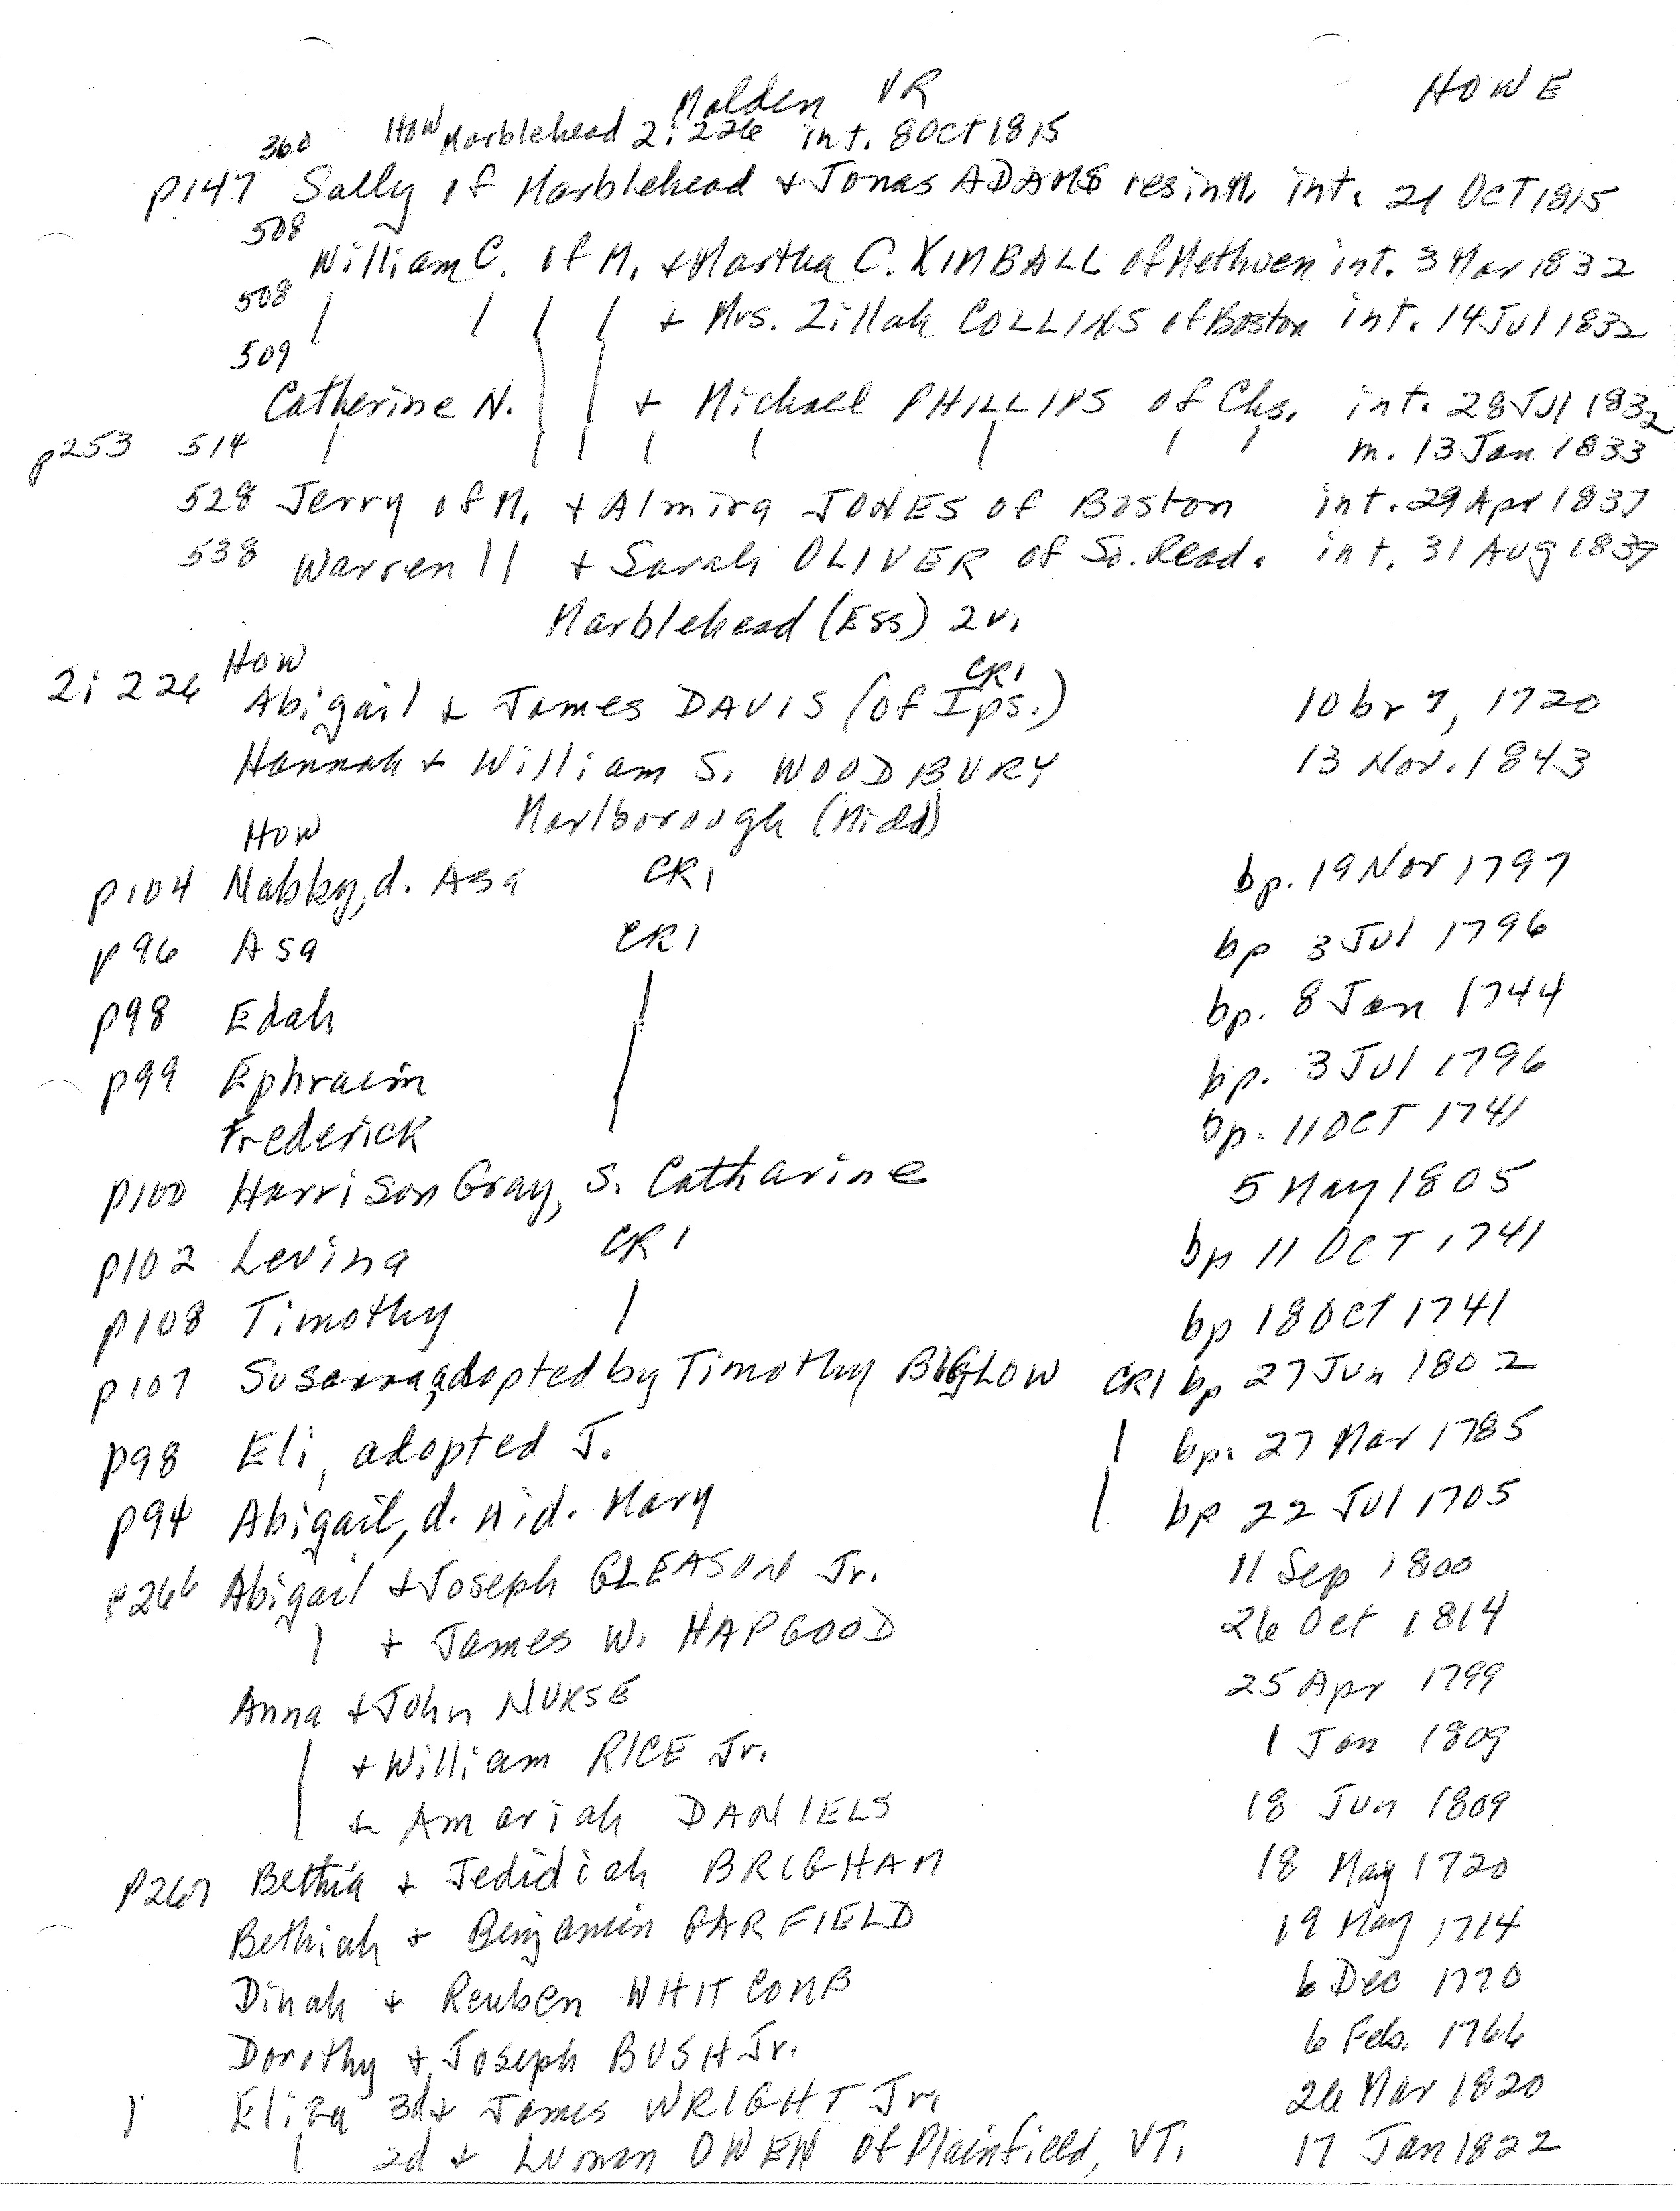 Malden VR HOWE
360 HOW Marblehead 2:226 int. 8 Oct 1815
p147 Sally of Marblehead + Jonas ADAMS res in M. int. 21 Oct 1815
508
William C. of M. + Martha C. KIMBALL of Methuen int. 3 Mar 1832
508 | | | | + Mrs. Zillah COLLINS of Boston int. 14 Jul 1832
509
Catherine N. | | + Michael PHILLIPS of Chs. int. 28 Jul 1832
p253 514 | | | | | | | | m. 13 Jan 1833
528 Jerry of M. + Almira JONES of Boston int. 29 Apr 1837
538 Warren || + Sarah OLIVER of So. Read. int. 31 Aug 1839
Marblehead (Ess) 2v.
HOW
2:226 Abigail + James DAVIS (of Ips.) CR1 10br 7, 1720
Hannah + William S. WOODBURY 13 Nov. 1843
Marlborough (Midd)
HOW
p104 Nabby, d. Asa CR1 bp. 19 Nov 1797
p96 Asa CR1 bp 3 Jul 1796
p98 Edah | bp. 8 Jan 1744
p99 Ephraim | bp. 3 Jul 1796
Frederick bp. 11 Oct 1741
p100 Harrison Gray, s. Catharine 5 May 1805
p102 Levina CR1 bp 11 Oct 1741
p108 Timothy | bp 18 Oct 1741
p107 Susanna, adopted by Timothy BIGLOW CR1 bp 27 Jun 1802
p98 Eli, adopted J. | bp. 27 Mar 1785
p94 Abigail, d. wid. Mary | bp 22 Jul 1705
p266 Abigail + Joseph GLEASON Jr. 11 Sep 1800
| + James W. HAPGOOD 26 Oct 1814
Anna + John NURSE 25 Apr 1799
| + William RICE Jr. 1 Jan 1809
| + Amariah DANIELS 18 Jun 1809
p267 Bethia + Jedidiah BRIGHAM 18 May 1720
Bethiah + Benjamin GARFIELD 19 May 1714
Dinah + Reuben WHITCOMB 6 Dec 1770
Dorothy + Joseph BUSH Jr. 6 Feb. 1766
| Eliza 3d + James WRIGHT Jr. 26 Mar 1820
| 2d + Luman OWEN of Plainfield, VT. 17 Jan 1822